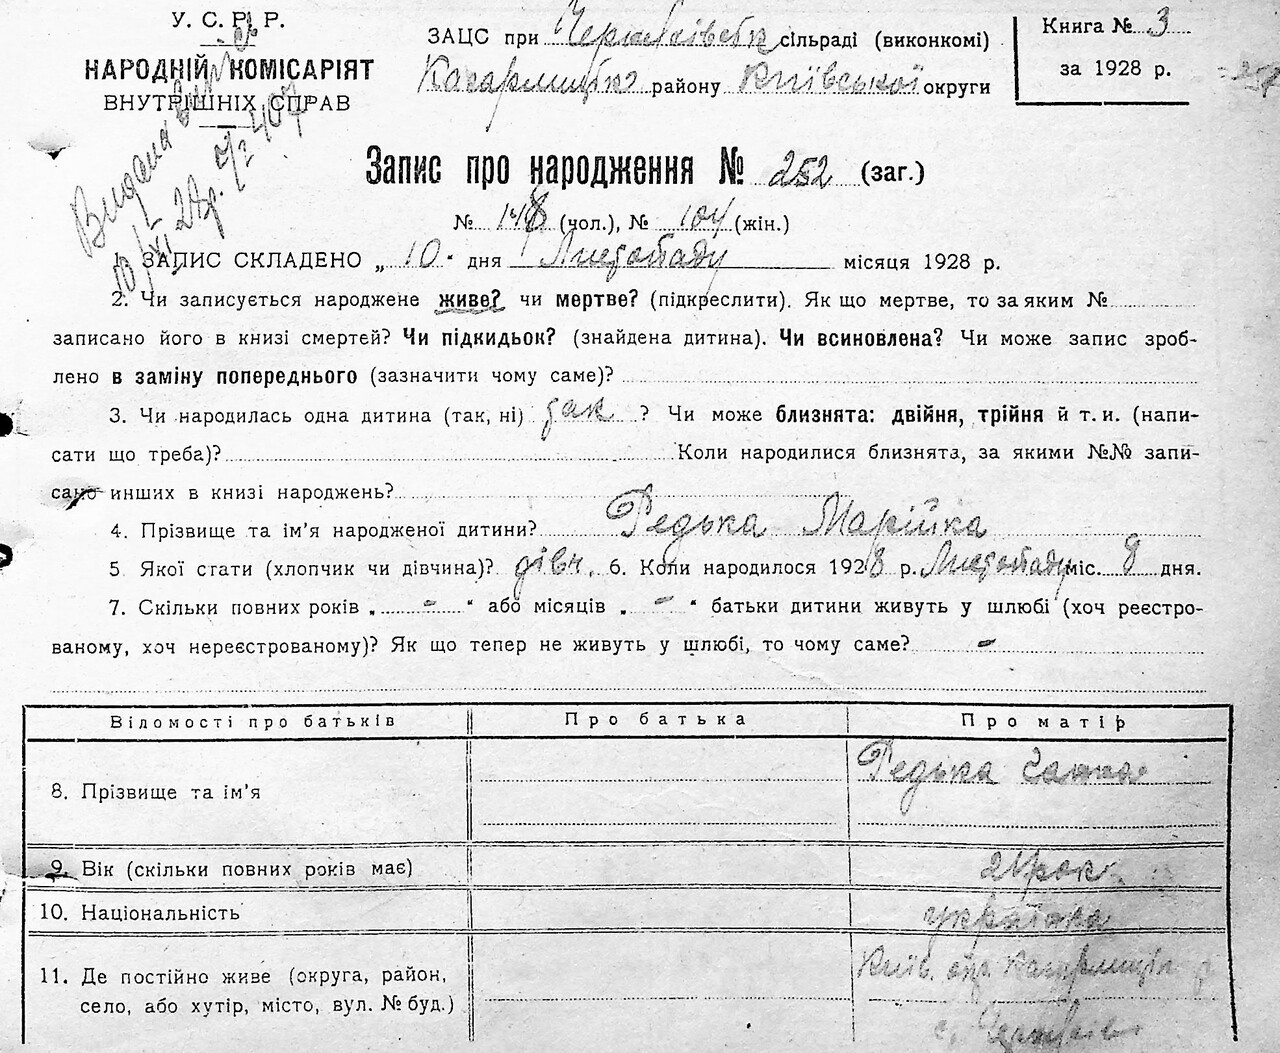 У. С. Р. Р.
НАРОДНІЙ КОМІСАРІЯТ
ВНУТРІШНІХ СПРАВ
ЗАЦС при сільраді (виконкомі)
Кагарлицьк. району Київської округи
Книга № 3
за 1928 р.
Видана
Запис про народження № 252 (заг.)
№ 148 (чол.), № 104 (жін.)
1. ЗАПИС СКЛАДЕНО „ 10 “ дня Листопаду місяця 1928 р.
2. Чи записується народжене живе? чи мертве? (підкреслити). Як що мертве, то за яким №
записано його в книзі смертей? Чи підкидьок? (знайдена дитина). Чи всиновлена? Чи може запис зроб-
лено в заміну попереднього (зазначити чому саме)?
3. Чи народилась одна дитина (так, ні) так ? Чи може близнята: двійня, трійня й т. и. (напи-
сати що треба)? Коли народилися близнята, за якими №№ запи-
сано инших в книзі народжень?
4. Прізвище та ім'я народженої дитини? Редька Марійка
5 Якої стати (хлопчик чи дівчина)? дівч. 6. Коли народилося 1928 р. Листопаду міс. 9 дня.
7. Скільки повних років „ - “ або місяців „ - “ батьки дитини живуть у шлюбі (хоч реєстро-
ваному, хоч нереєстрованому)? Як що тепер не живуть у шлюбі, то чому саме? -
Відомості про батьків Про батька Про матір
8. Прізвище та ім'я Редька Ганна
9. Вік (скільки повних років має) рок.
10. Національність українка
11. Де постійно живе (округа, район, Київ. окр. Кагарлицьк р
село, або хутір, місто, вул. № буд.) с.